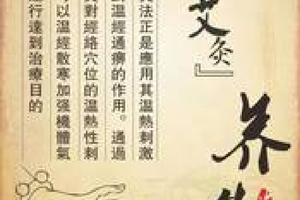 艾灸』
养生
法正是應用其溫熱刺激
溫經通痹的作用。通過
對經絡穴位的溫熱性刺
以溫經散寒加强機體氣
行達到治療目的